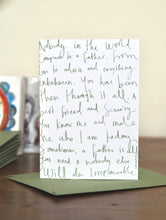 Nobody in the World
compares to a Father, from
to advice and anything
inbetween. You have been
then through it all
best friend and Growing
you know me and make
me who I am today
Sometimes, a Father is all
you need & nobody else
Will do. Irreplaceable